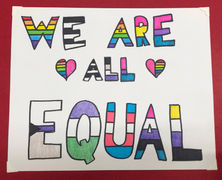 WE ARE
ALL
EQUAL